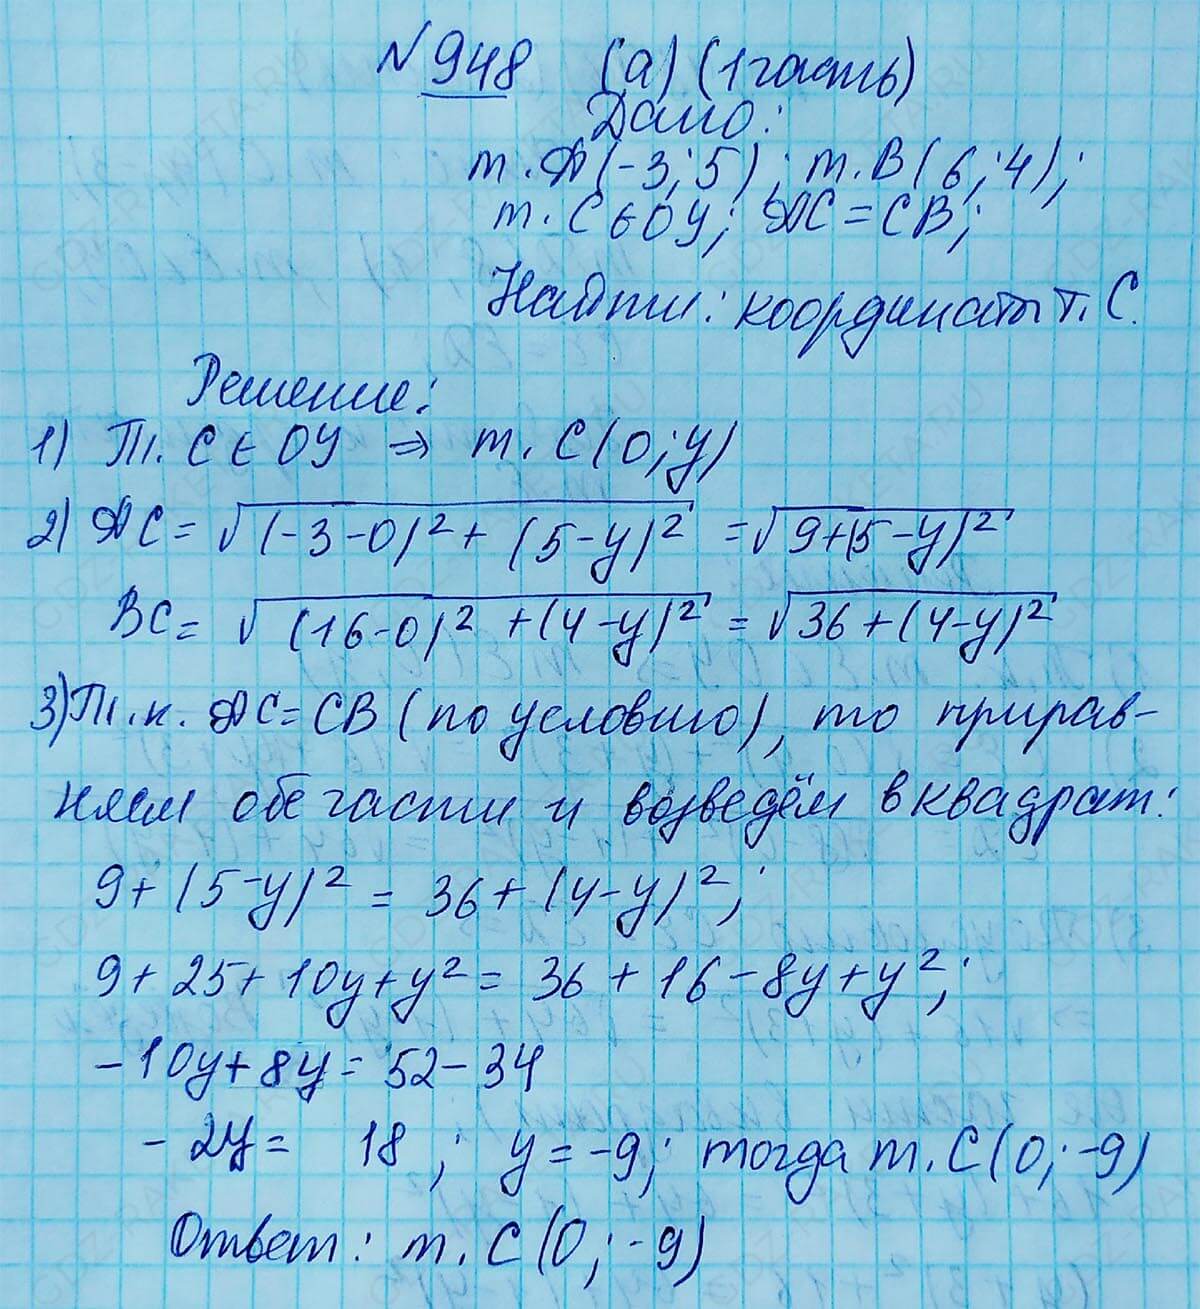 №948 (а) (1 часть)
Дано:
т. А(-3; 5); т. В(6; 4);
т. С ∈ ОУ; АС = СВ;
Найти: координаты т. С.
Решение:
1) Т. С ∈ ОУ ⇒ т. С(0; у)
2) АС = √(-3-0)² + (5-у)² = √9+(5-у)²
ВС = √(16-0)² + (4-у)² = √36+(4-у)²
3) Т. к. АС = СВ (по условию), то прирав-
няем обе части и возведём в квадрат:
9 + (5-у)² = 36 + (4-у)²;
9 + 25 + 10у + у² = 36 + 16 - 8у + у²;
-10у + 8у = 52 - 34
-2у = 18; у = -9; тогда т. С(0; -9)
Ответ: т. С(0; -9)